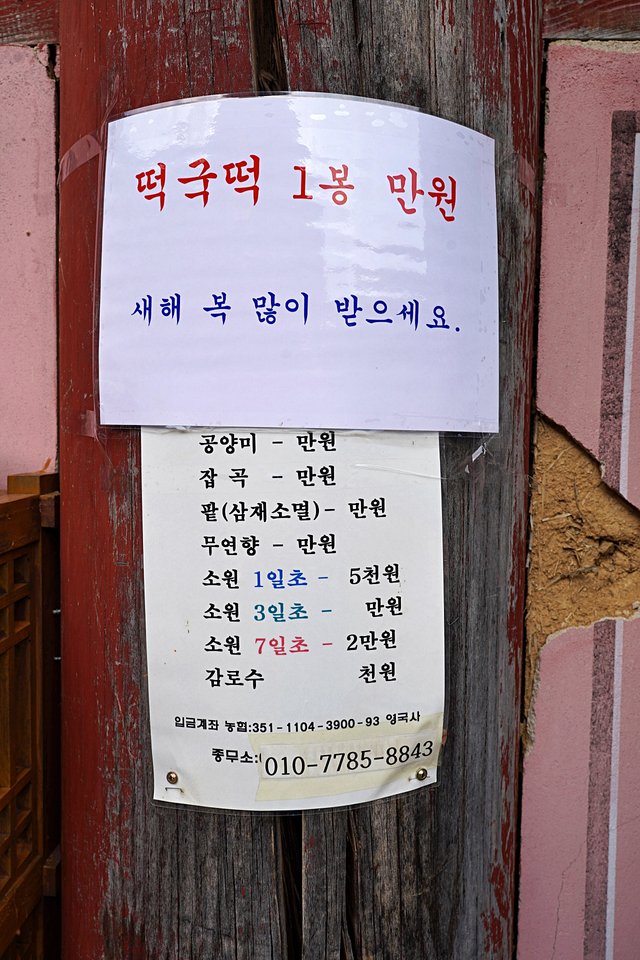 떡국떡 1봉 만원
새해 복 많이 받으세요.
공양미 - 만원
잡 곡 - 만원
팥(삼재소멸) - 만원
무연향 - 만원
소원 1일초 - 5천원
소원 3일초 - 만원
소원 7일초 - 2만원
감로수 천원
입금계좌 농협:351-1104-3900-93 영국사
종무소: 010-7785-8843